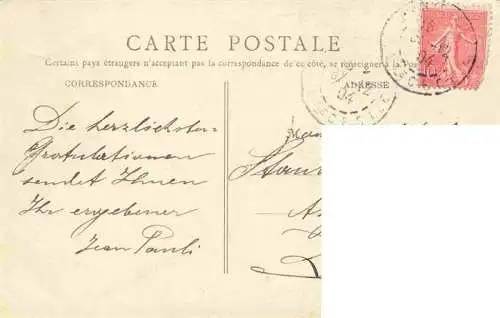 CARTE POSTALE
Certains pays étrangers n'acceptant pas la correspondance de ce côté, se renseigner à la Pos
CORRESPONDANCE
ADRESSE
Die herzlichsten
Gratulationen
sendet Ihnen
Ihr ergebener
Jean Pauli